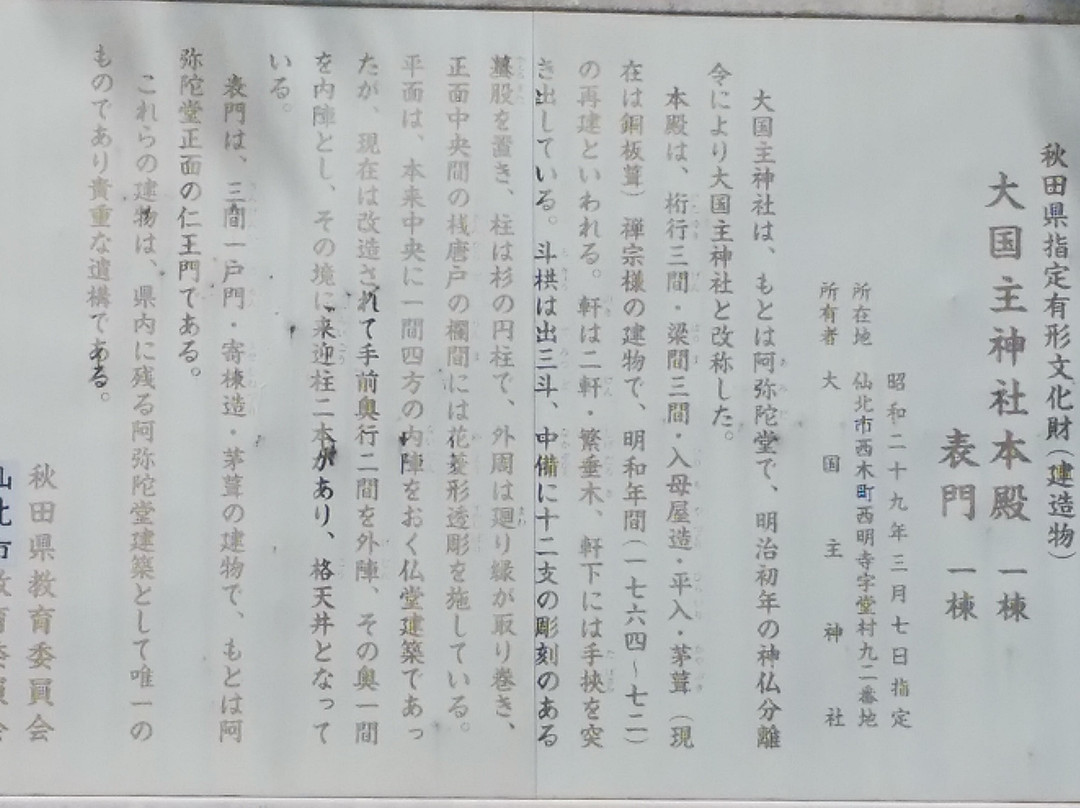 秋田県指定有形文化財(建造物)
大国主神社本殿 一棟
表門 一棟
昭和二十九年三月七日指定
所在地 仙北市西木町西明寺字堂村九二番地
所有者 大国主神社
大国主神社は、もとは阿弥陀堂で、明治初年の神仏分離
令により大国主神社と改称した。
本殿は、桁行三間・梁間三間・入母屋造・平入・茅葺(現
在は銅板葺)禅宗様の建物で、明和年間(一七六四~七二)
の再建といわれる。軒は二軒・繁垂木、軒下には手挟を突
き出している。斗栱は出三斗、中備に十二支の彫刻のある
蟇股を置き、柱は杉の円柱で、外周は廻り縁が取り巻き、
正面中央間の桟唐戸の欄間には花菱形透彫を施している。
平面は、本来中央に一間四方の内陣をおく仏堂建築であっ
たが、現在は改造されて手前奥行二間を外陣、その奥一間
を内陣とし、その境に来迎柱二本があり、格天井となって
いる。
表門は、三間一戸門・寄棟造・茅葺の建物で、もとは阿
弥陀堂正面の仁王門である。
これらの建物は、県内に残る阿弥陀堂建築として唯一の
ものであり貴重な遺構である。
秋田県教育委員会
仙北市教育委員会